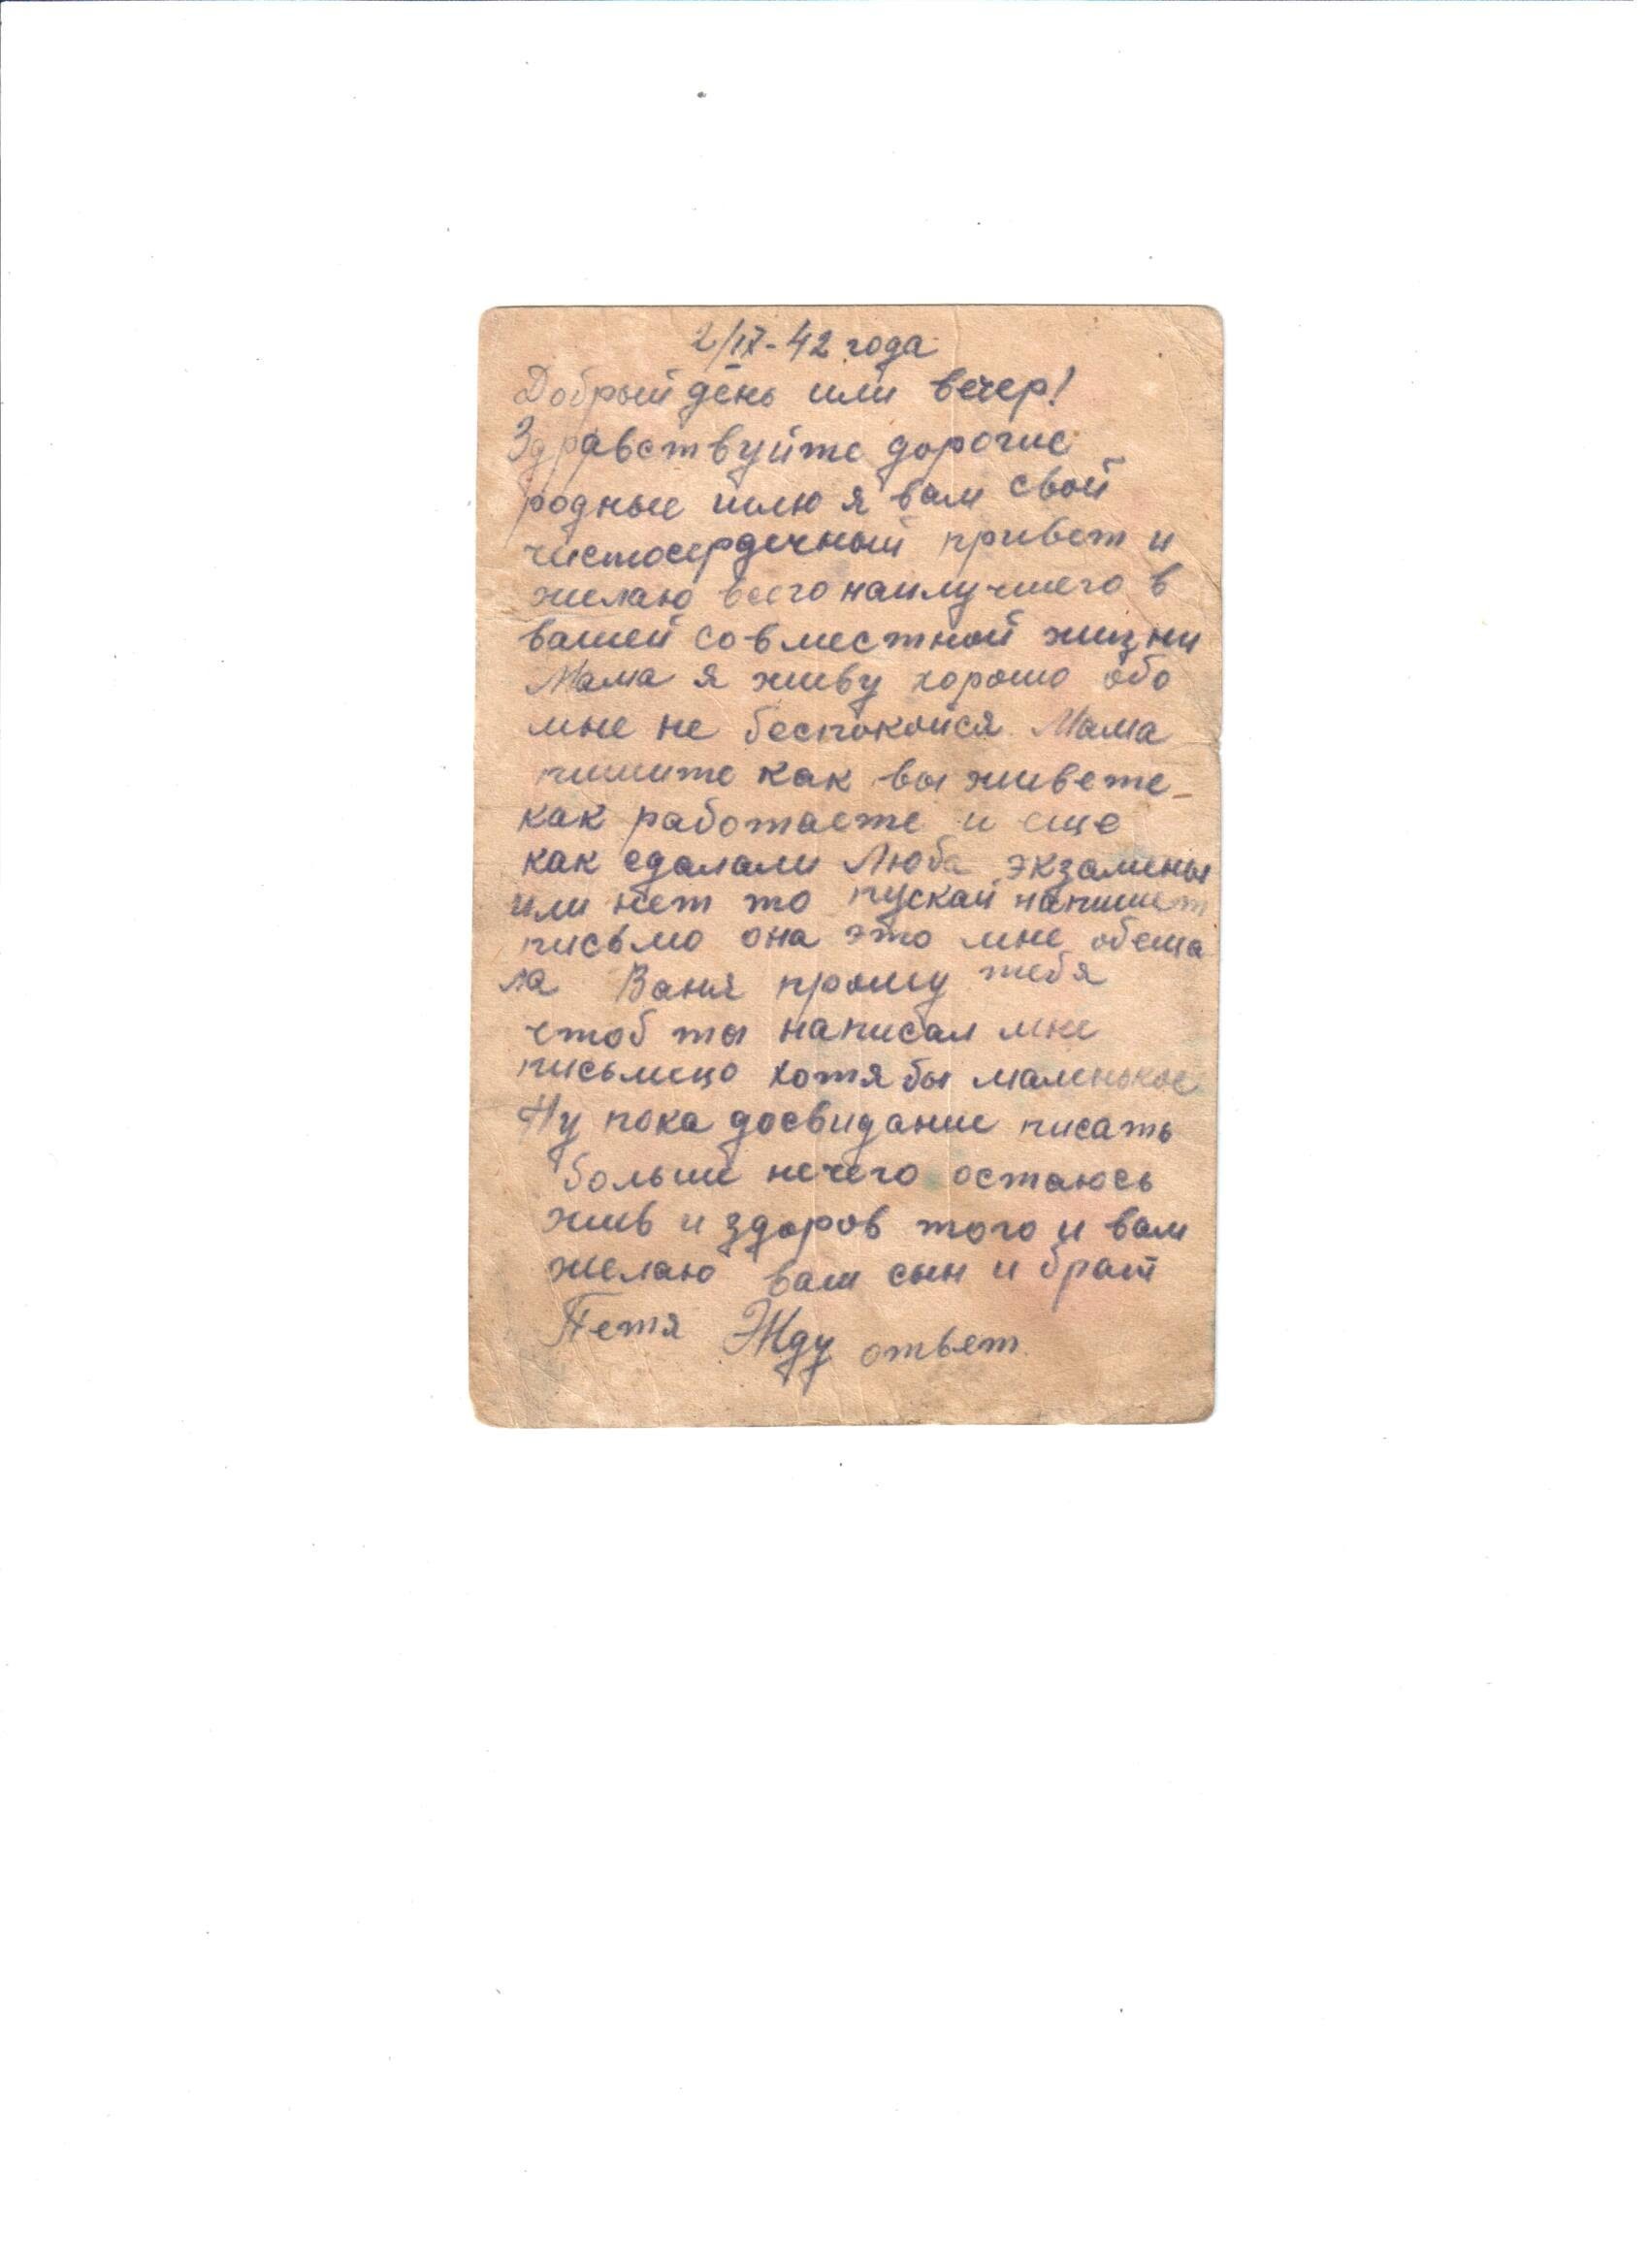 2/IX-42 года
Добрый день или вечер!
Здравствуйте дорогие
родные шлю я вам свой
чистосердечный привет и
желаю всего наилучшего в
вашей совместной жизни
Мама я живу хорошо обо
мне не беспокойся. Мама
пишите как вы живете
как работаете и еще
как сдалали Люба экзамены
или нет то пускай напишет
письмо она это мне обеща
ла Ваня прошу тебя
чтоб ты написал мне
письмецо хотя бы маленькое
Ну пока досвидание писать
больше нечего остаюсь
жив и здоров того и вам
желаю ваш сын и брат
Петя Жду ответ.